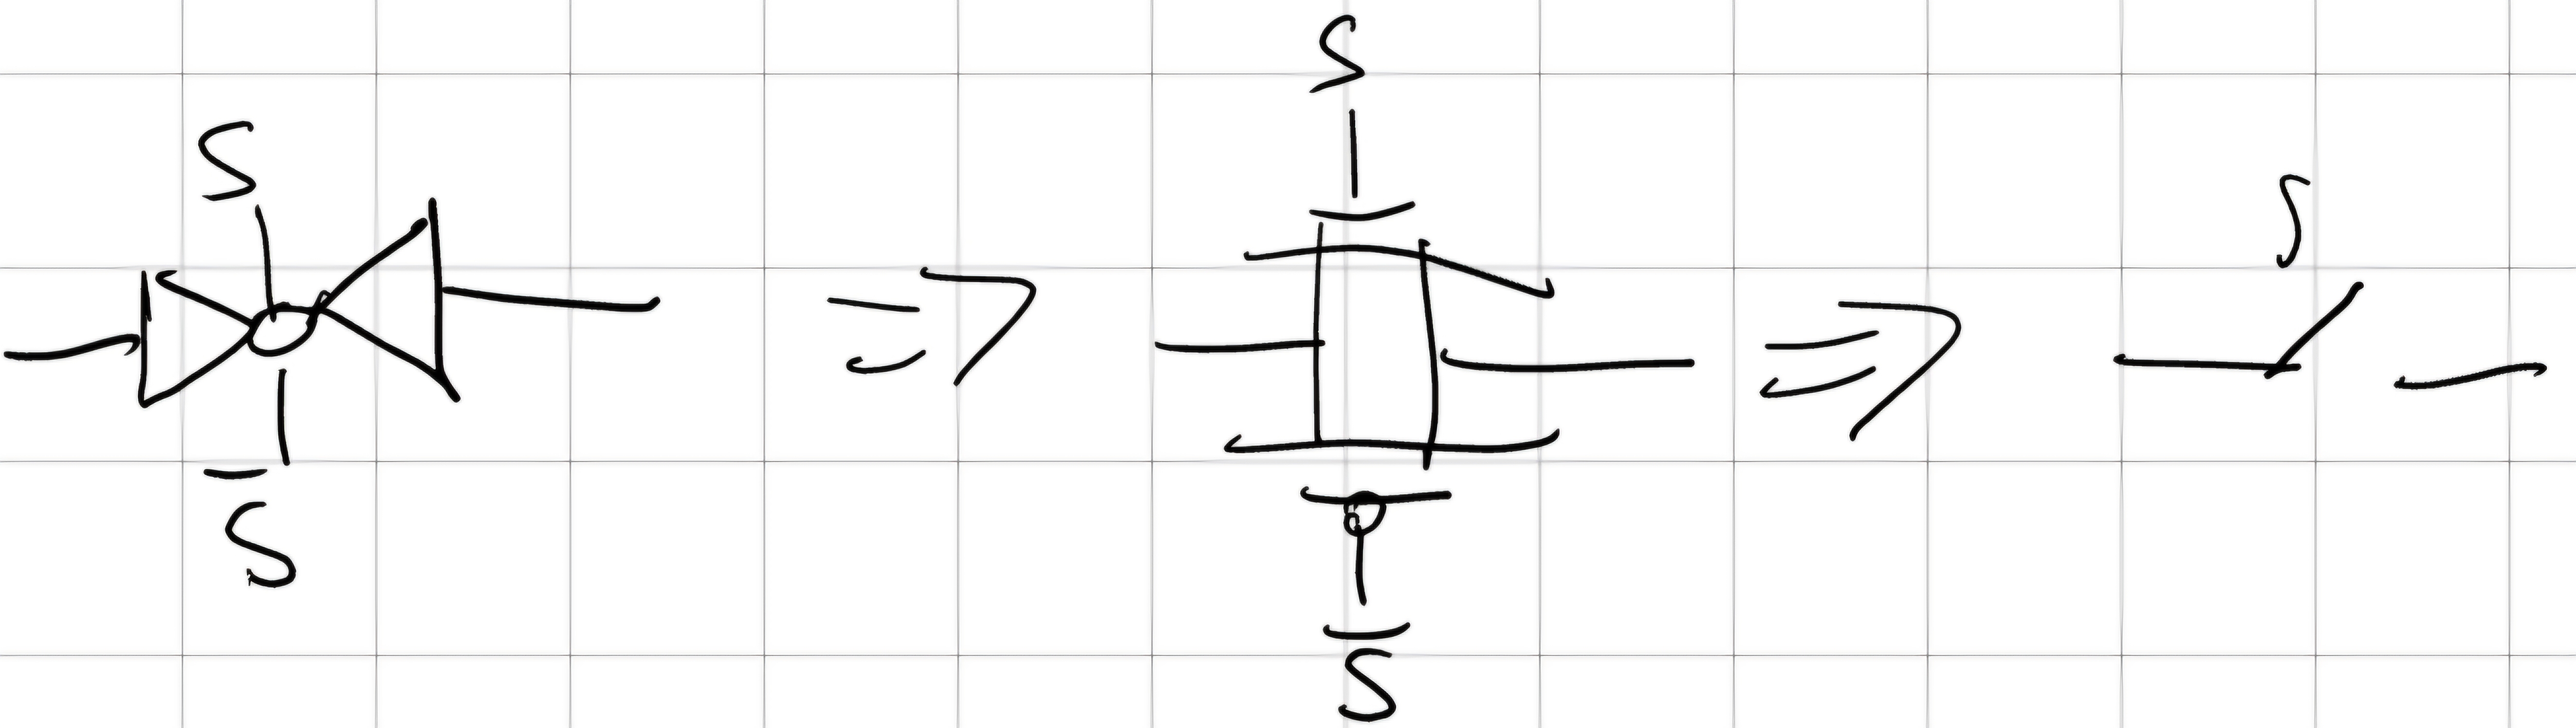 S
S
S
⇒
⇒
S̅
S̅